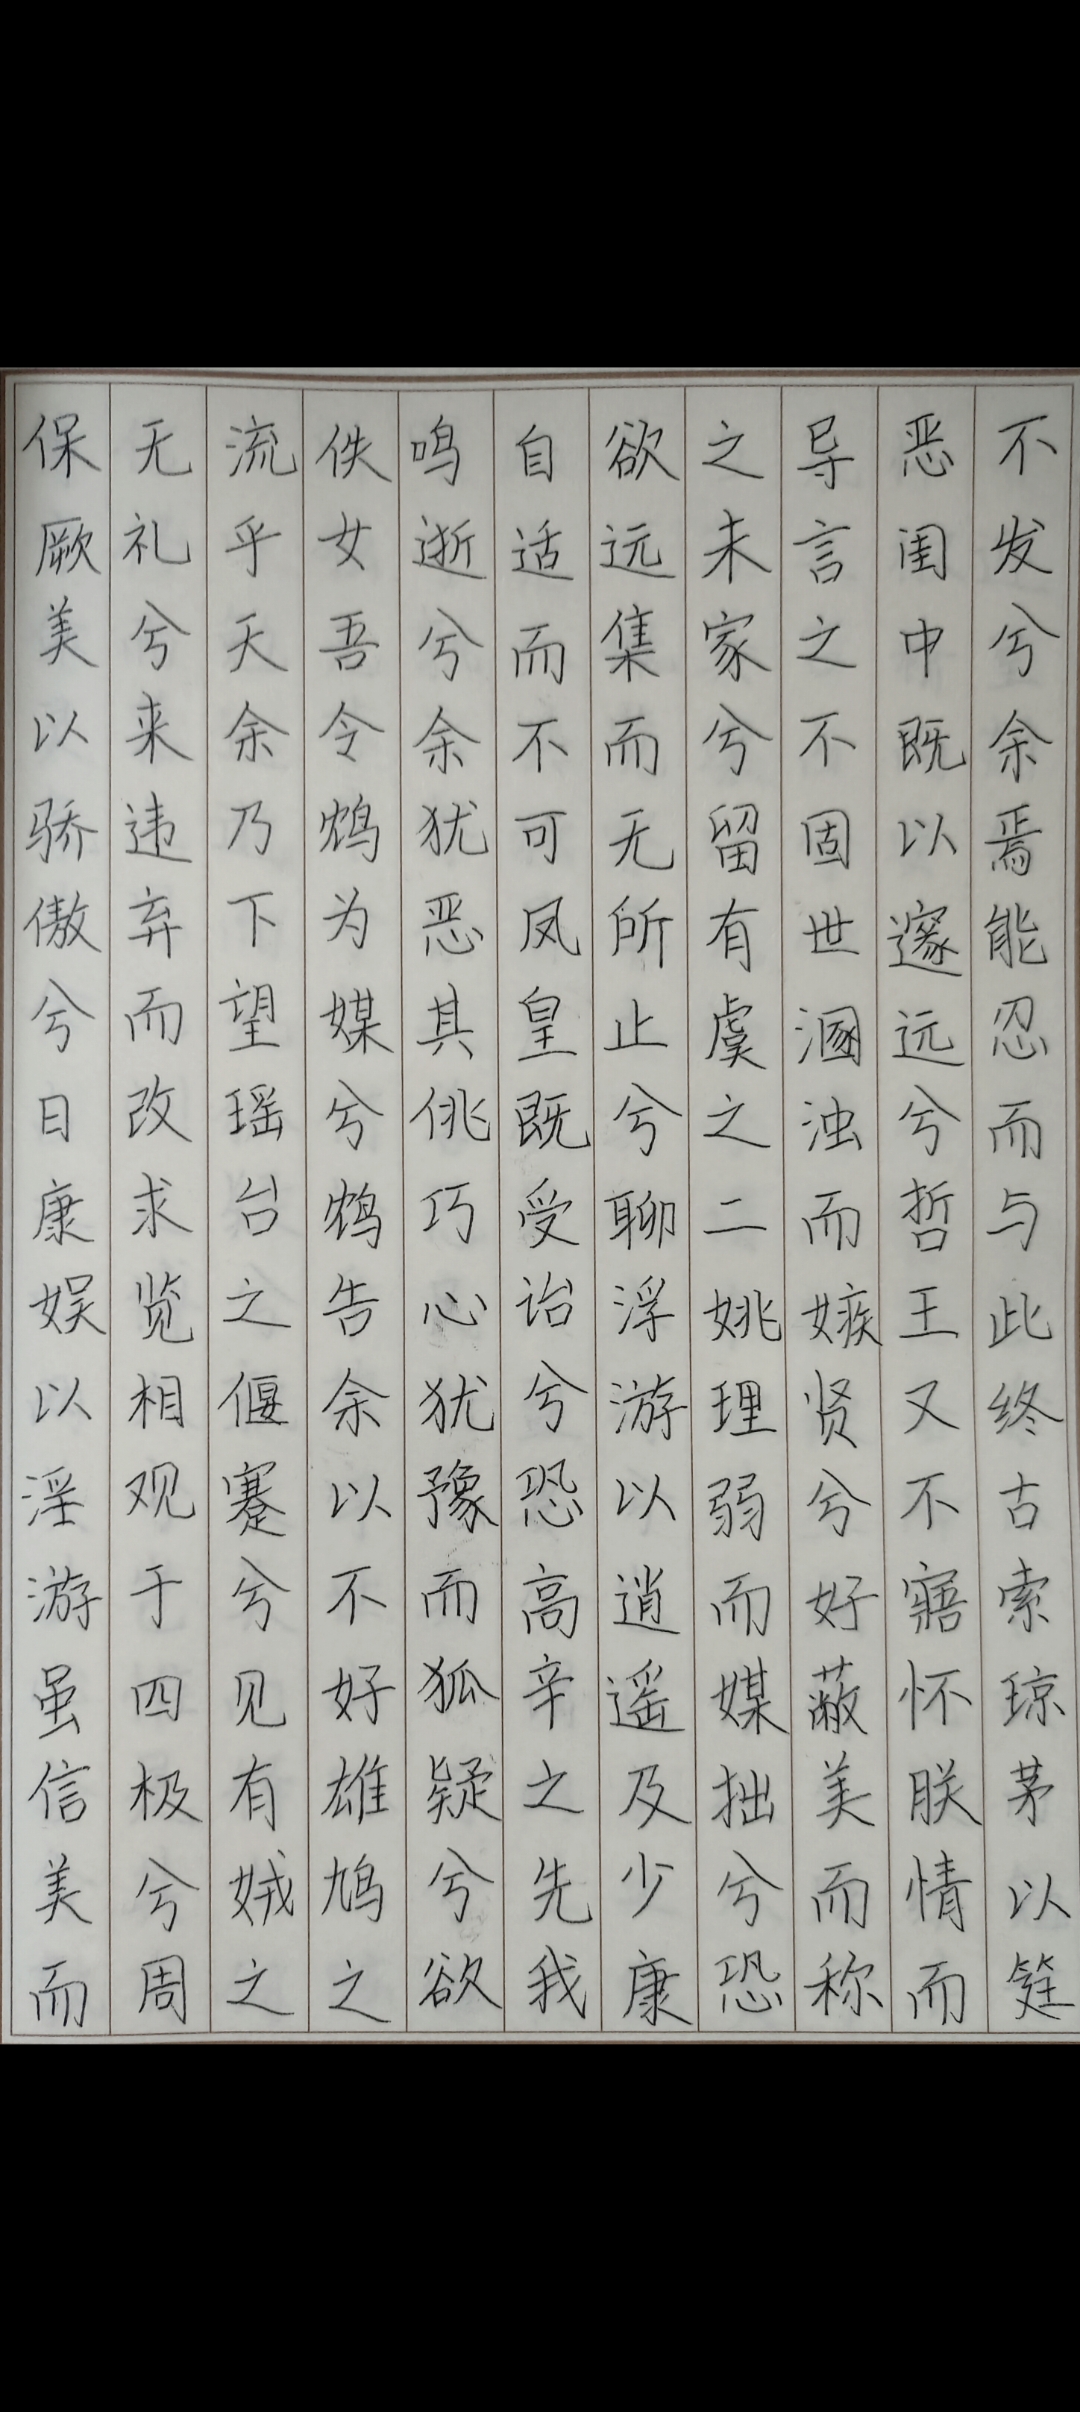 保厥美以骄傲兮日康娱以淫游虽信美而
无礼兮来违弃而改求览相观于四极兮周
流乎天余乃下望瑶台之偃蹇兮见有娀之
佚女吾令鸩为媒兮鸩告余以不好雄鸠之
鸣逝兮余犹恶其佻巧心犹豫而狐疑兮欲
自适而不可凤皇既受诒兮恐高辛之先我
欲远集而无所止兮聊浮游以逍遥及少康
之未家兮留有虞之二姚理弱而媒拙兮恐
导言之不固世溷浊而嫉贤兮好蔽美而称
恶闺中既以邃远兮哲王又不寤怀朕情而
不发兮余焉能忍而与此终古索琼茅以筳